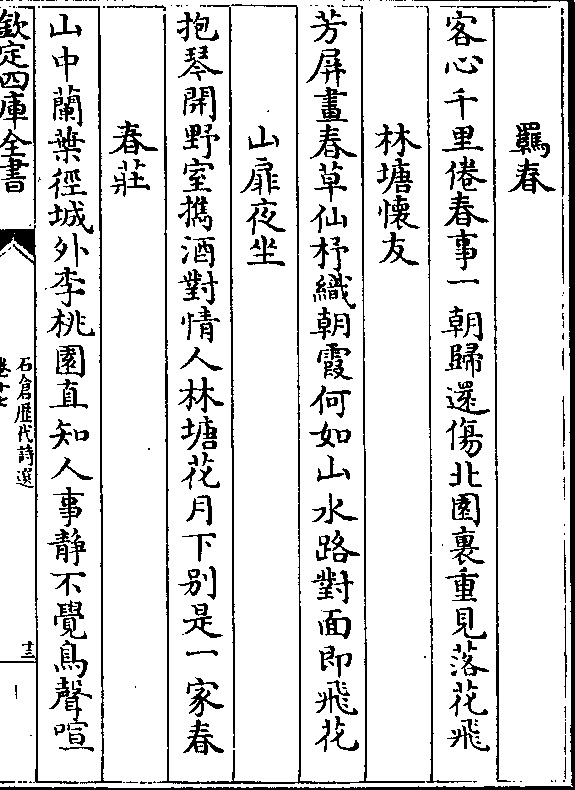 羈春
客心千里倦春事一朝歸還傷北園裏重見落花飛
林塘懷友
芳屏畫春草仙杼織朝霞何如山水路對面即飛花
山扉夜坐
抱琴開野室擕酒對情人林塘花月下別是一家春
春莊
山中蘭葉徑城外李桃園直知人事靜不覺鳥聲喧
欽定四庫全書
石倉歷代詩選
卷十七
十三